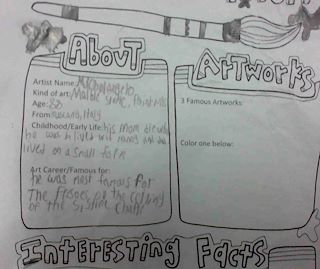 About
Artworks
Artist Name: Michelangelo
Kind of art: Marble stone, Paintings
Age: 88
From: Tuscany, Italy
Childhood/Early Life: his mom died
he was 6 lived wit nanny and
lived on a small farm
Art Career/Famous for:
he was most famous for
The frescoes of the ceiling
of the Sistine Chapel
3 Famous Artworks:
Color one below:
Interesting Facts